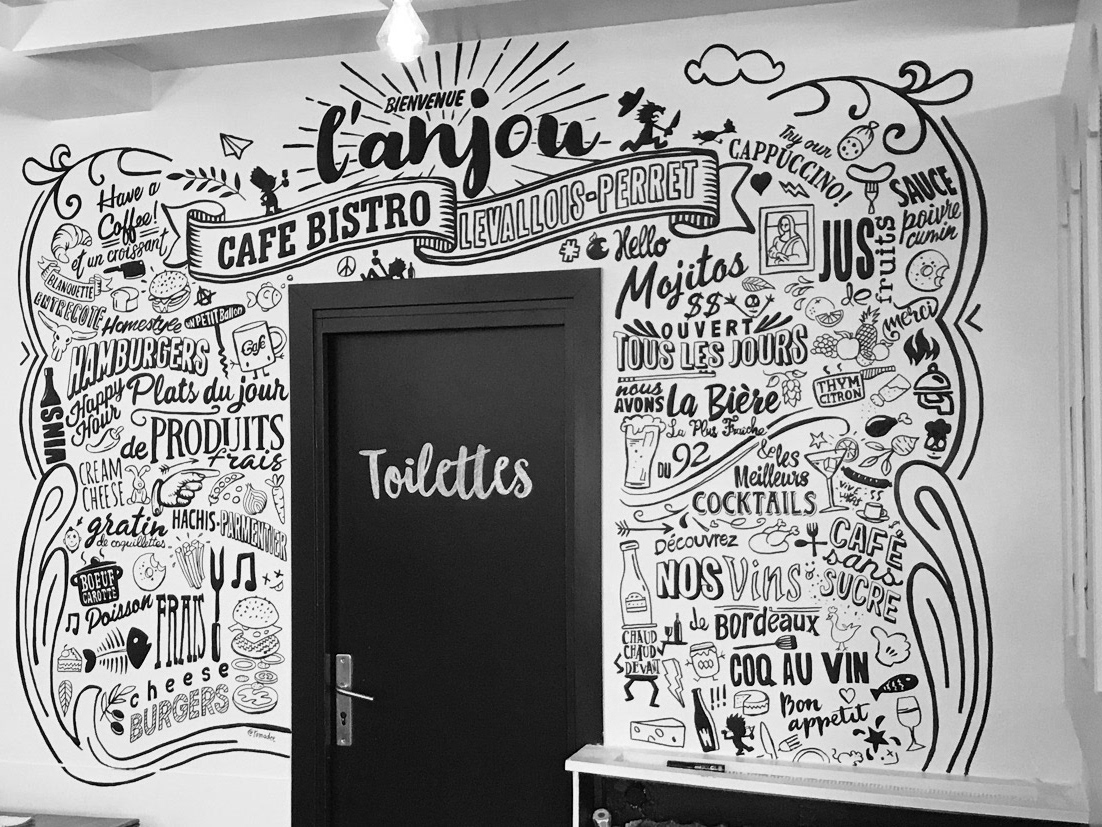 BIENVENUE
l'anjou
CAFE BISTRO
LEVALLOIS-PERRET
Have a
Coffee!
et un croissant
BLANQUETTE
ENTRECOTE
Homestyle
UN PETIT Ballon
Café
HAMBURGERS
VINS
Happy
Hour
Plats du jour
de PRODUITS
frais
CREAM
CHEESE
gratin
de coquillettes
HACHIS-PARMENTIER
BOEUF
CAROTTE
Poisson
FRAIS
cheese
BURGERS
Toilettes
Try our
CAPPUCCINO!
SAUCE
poivre
cumin
#
Hello
Mojitos
$$
JUS
de
fruits
merci
OUVERT
TOUS LES JOURS
nous
AVONS
La Bière
La Plus Fraîche
DU 92
THYM
CITRON
& les
Meilleurs
COCKTAILS
Découvrez
NOS Vins
de Bordeaux
CAFÉ
sans
SUCRE
CHAUD
CHAUD
DEVANT
COQ AU VIN
!!!
Bon
appetit